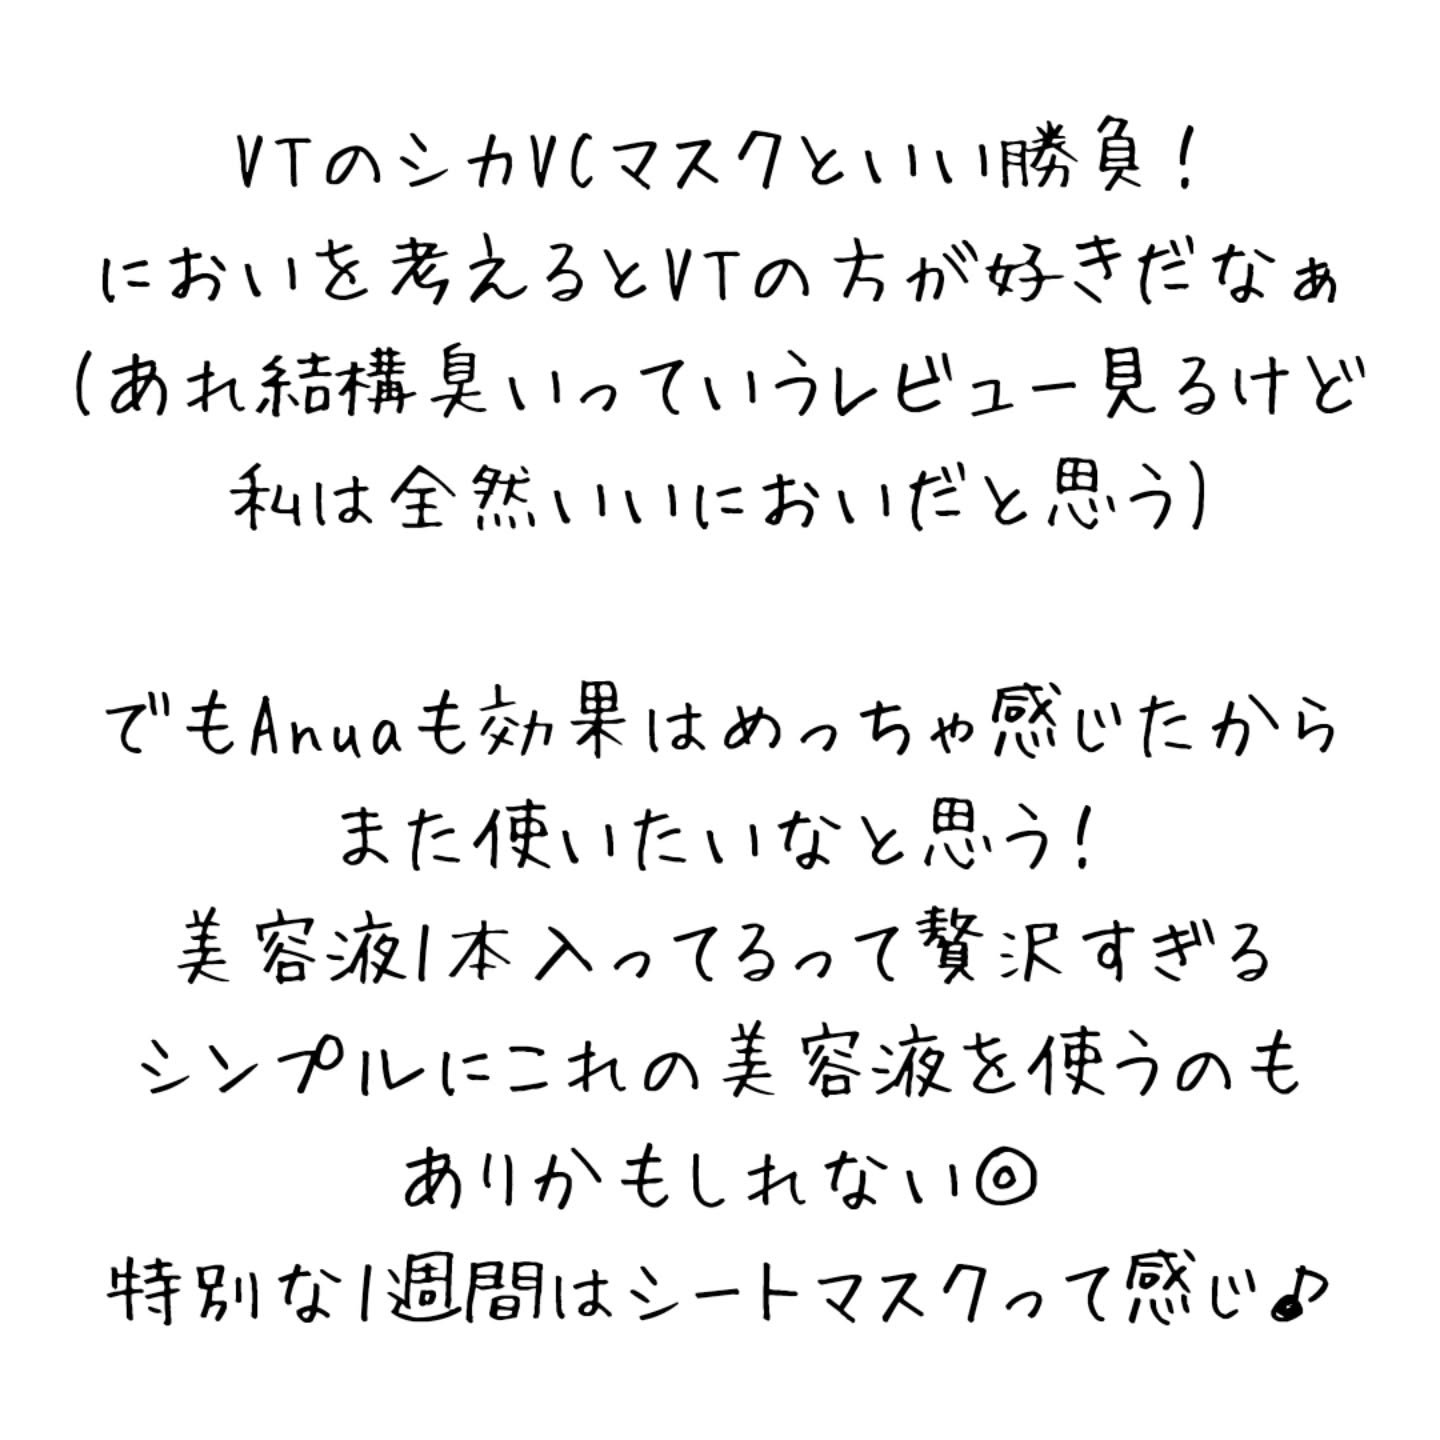 VTのシカVCマスクといい勝負！
においを考えるとVTの方が好きだなぁ
(あれ結構臭いっていうレビュー見るけど
私は全然いいにおいだと思う)
でもAnuaも効果はめっちゃ感じたから
また使いたいなと思う！
美容液1本入ってるって贅沢すぎる
シンプルにこれの美容液を使うのも
ありかもしれない◎
特別な1週間はシートマスクって感じ♪